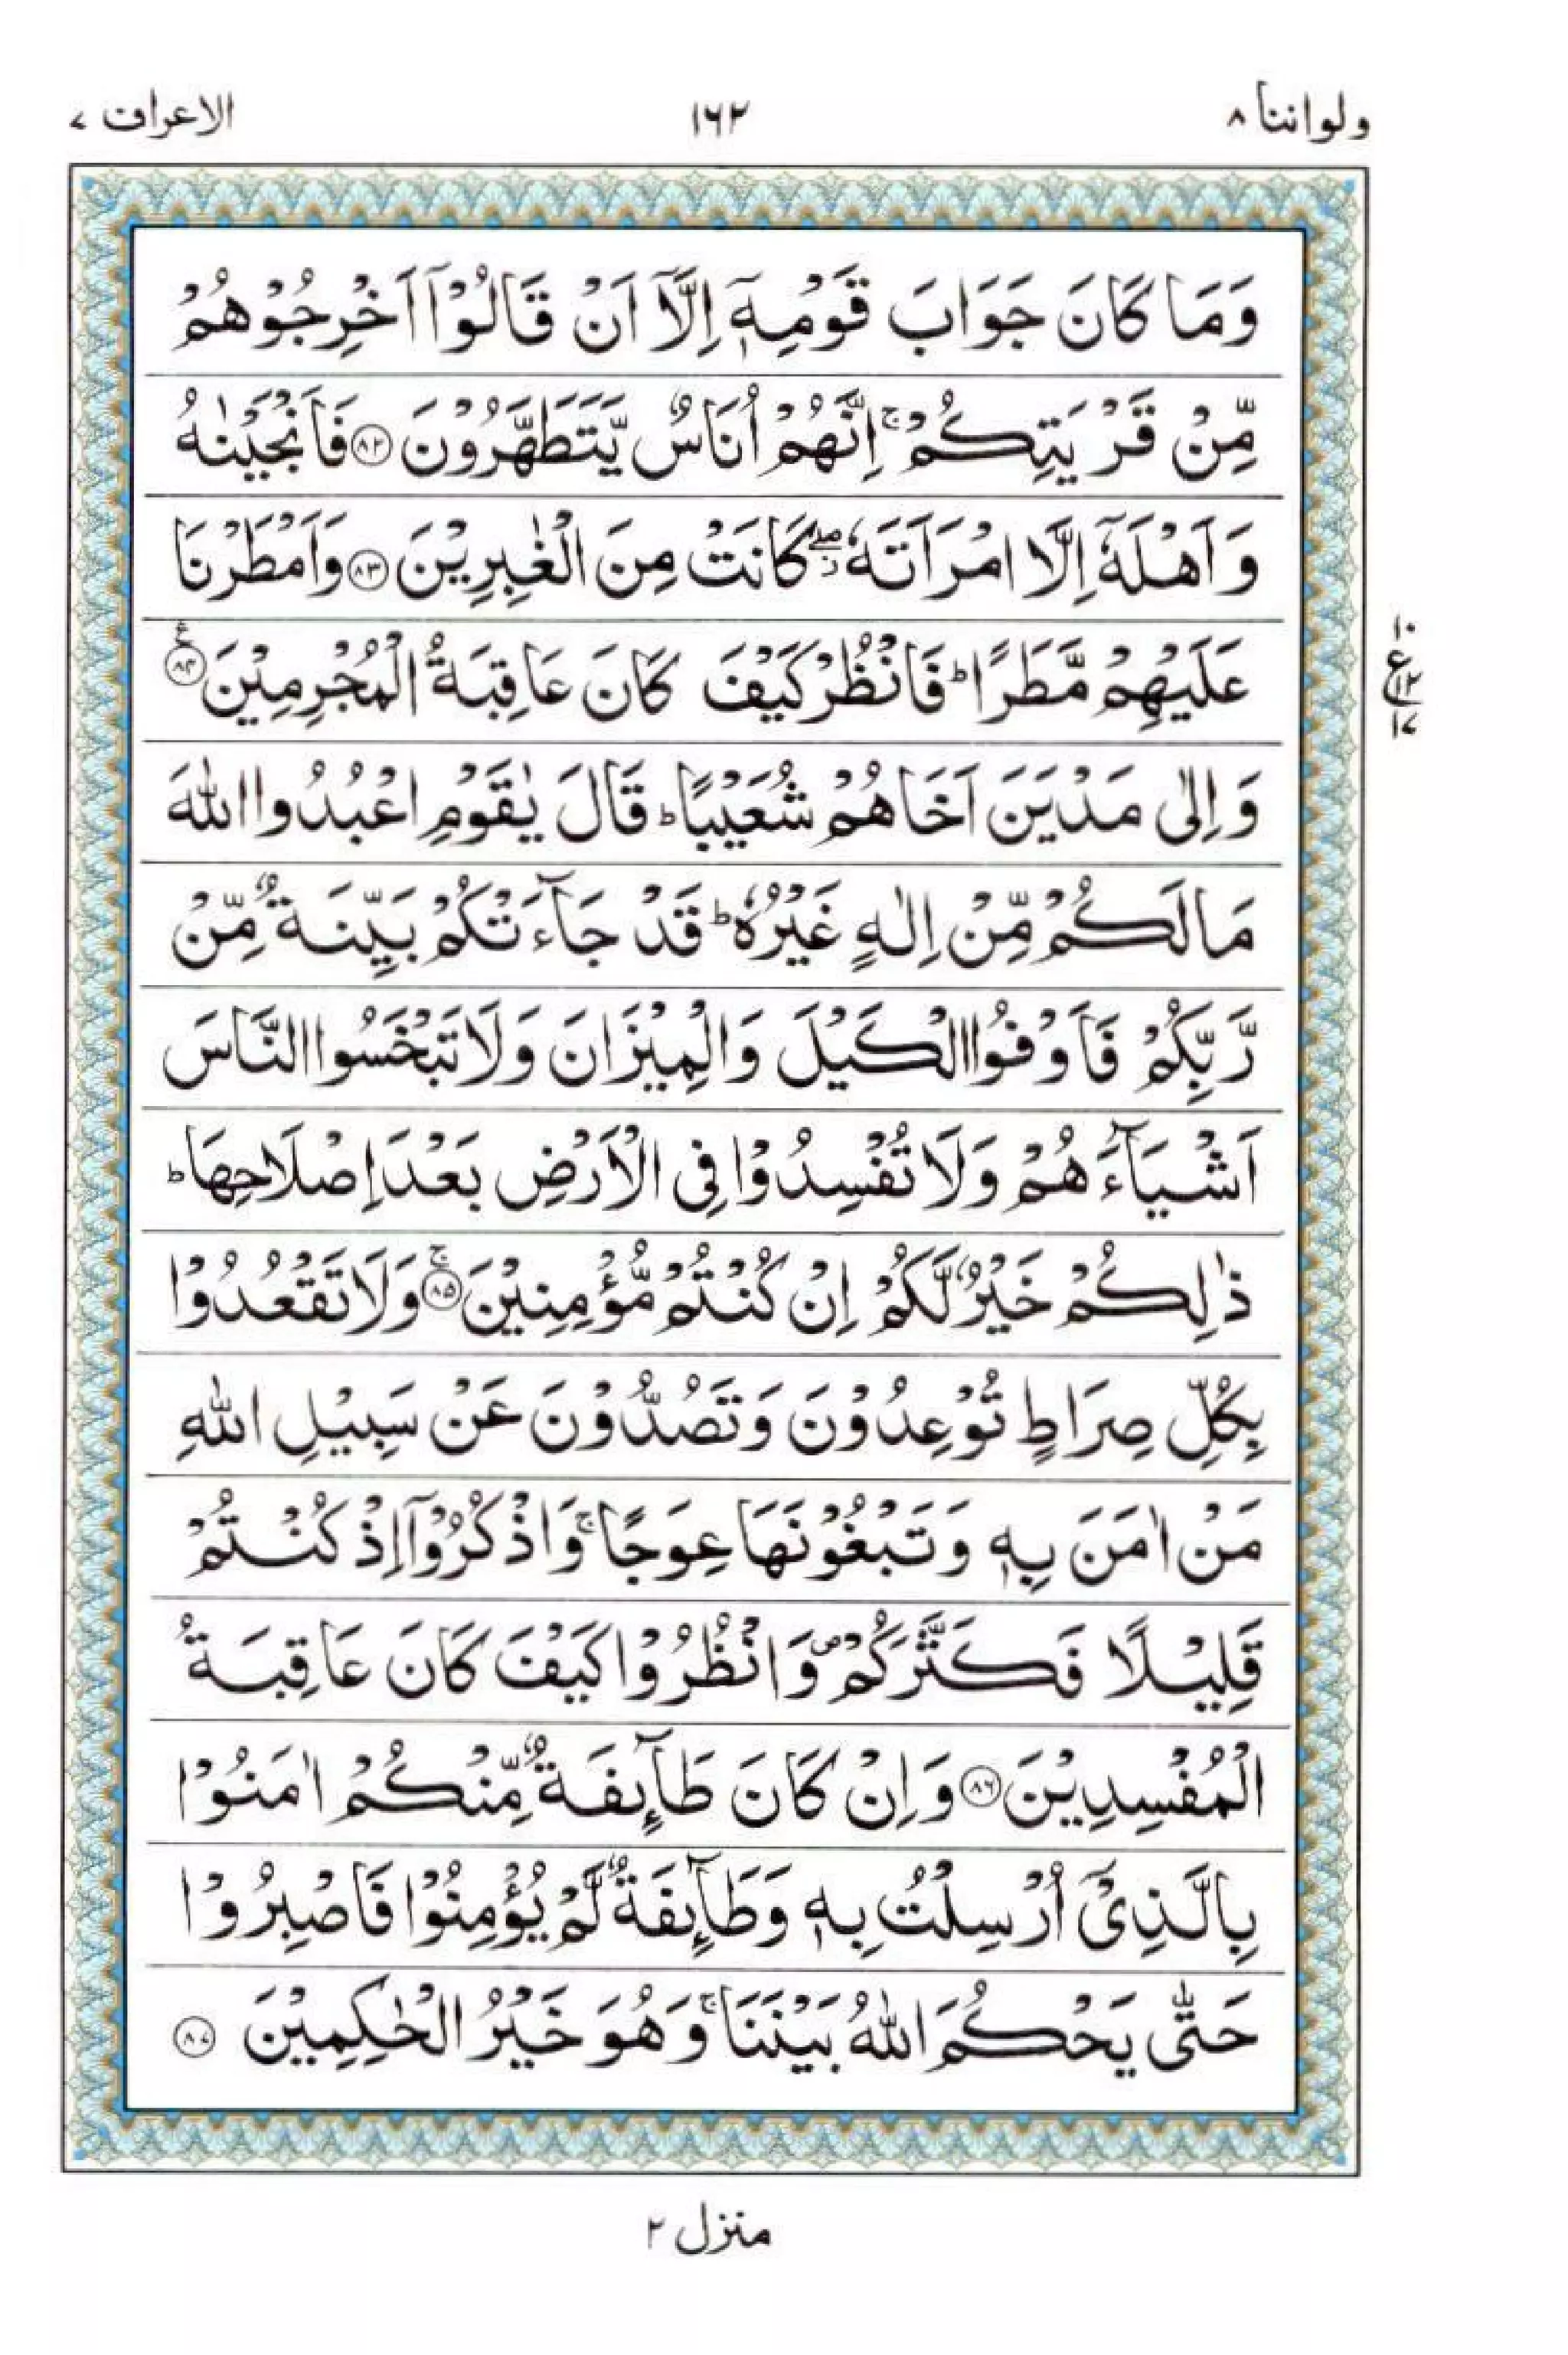 ولواننا ٨
١٦٢
الاعراف ٧
وَمَا كَانَ جَوَابَ قَوْمِهٖۤ اِلَّاۤ اَنْ قَالُوْۤا اَخْرِجُوْهُمْ
مِّنْ قَرْيَتِكُمْ ۚ اِنَّهُمْ اُنَاسٌ يَّتَطَهَّرُوْنَ ﴿٨٢﴾ فَاَنْجَيْنٰهُ
وَاَهْلَهٗۤ اِلَّا امْرَاَتَهٗ ۖ كَانَتْ مِنَ الْغٰبِرِيْنَ ﴿٨٣﴾ وَاَمْطَرْنَا
عَلَيْهِمْ مَّطَرًا ؕ فَانْظُرْ كَيْفَ كَانَ عَاقِبَةُ الْمُجْرِمِيْنَ ﴿٨٤﴾ ع
١٠
ع
١٢
١٧
وَاِلٰى مَدْيَنَ اَخَاهُمْ شُعَيْبًا ؕ قَالَ يٰقَوْمِ اعْبُدُوا اللّٰهَ
مَا لَكُمْ مِّنْ اِلٰهٍ غَيْرُهٗ ؕ قَدْ جَآءَتْكُمْ بَيِّنَةٌ مِّنْ
رَّبِّكُمْ فَاَوْفُوا الْكَيْلَ وَالْمِيْزَانَ وَلَا تَبْخَسُوا النَّاسَ
اَشْيَآءَهُمْ وَلَا تُفْسِدُوْا فِى الْاَرْضِ بَعْدَ اِصْلَاحِهَا ؕ
ذٰلِكُمْ خَيْرٌ لَّكُمْ اِنْ كُنْتُمْ مُّؤْمِنِيْنَ ۚ ﴿٨٥﴾ وَلَا تَقْعُدُوْا
بِكُلِّ صِرَاطٍ تُوْعِدُوْنَ وَتَصُدُّوْنَ عَنْ سَبِيْلِ اللّٰهِ
مَنْ اٰمَنَ بِهٖ وَتَبْغُوْنَهَا عِوَجًا ۚ وَاذْكُرُوْۤا اِذْ كُنْتُمْ
قَلِيْلًا فَكَثَّرَكُمْ ۪ وَانْظُرُوْا كَيْفَ كَانَ عَاقِبَةُ
الْمُفْسِدِيْنَ ﴿٨٦﴾ وَاِنْ كَانَ طَآىِٕفَةٌ مِّنْكُمْ اٰمَنُوْا
بِالَّذِىْۤ اُرْسِلْتُ بِهٖ وَطَآىِٕفَةٌ لَّمْ يُؤْمِنُوْا فَاصْبِرُوْا
حَتّٰى يَحْكُمَ اللّٰهُ بَيْنَنَا ۚ وَهُوَ خَيْرُ الْحٰكِمِيْنَ ﴿٨٧﴾
منزل ٢